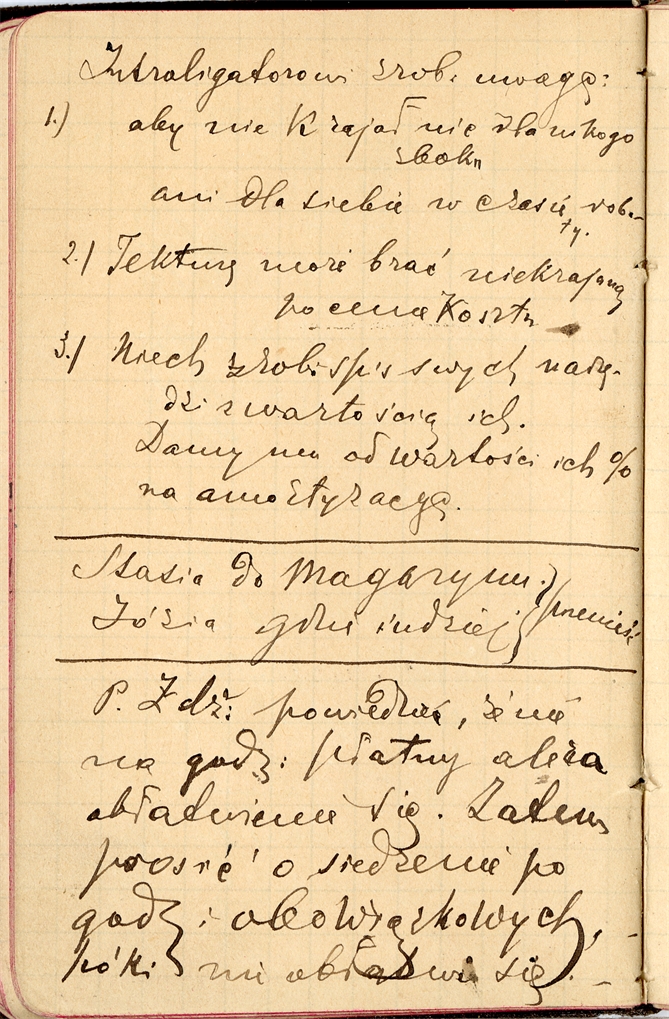 Intraligatorowi zrob. uwagę:
1.) aby nie krajał nic dla nikogo
z boku
ani dla siebie w czasie robo-
ty.
2.) Tekturę może brać niekrajaną
po cenie kosztu
3.) Niech zrobi spis swych narzę-
dzi z wartością ich.
Damy mu od wartości ich %
na amortyzację.
Stasia do magazynu.
Józia gdzie indziej przenieść
P. Zdz: powiedzieć, że nie
na godz: płatny ale za
obłatwienie się. Zatem
prosić o siedzenie po
godz: obowiązkowych,
póki nie obłatwi się.